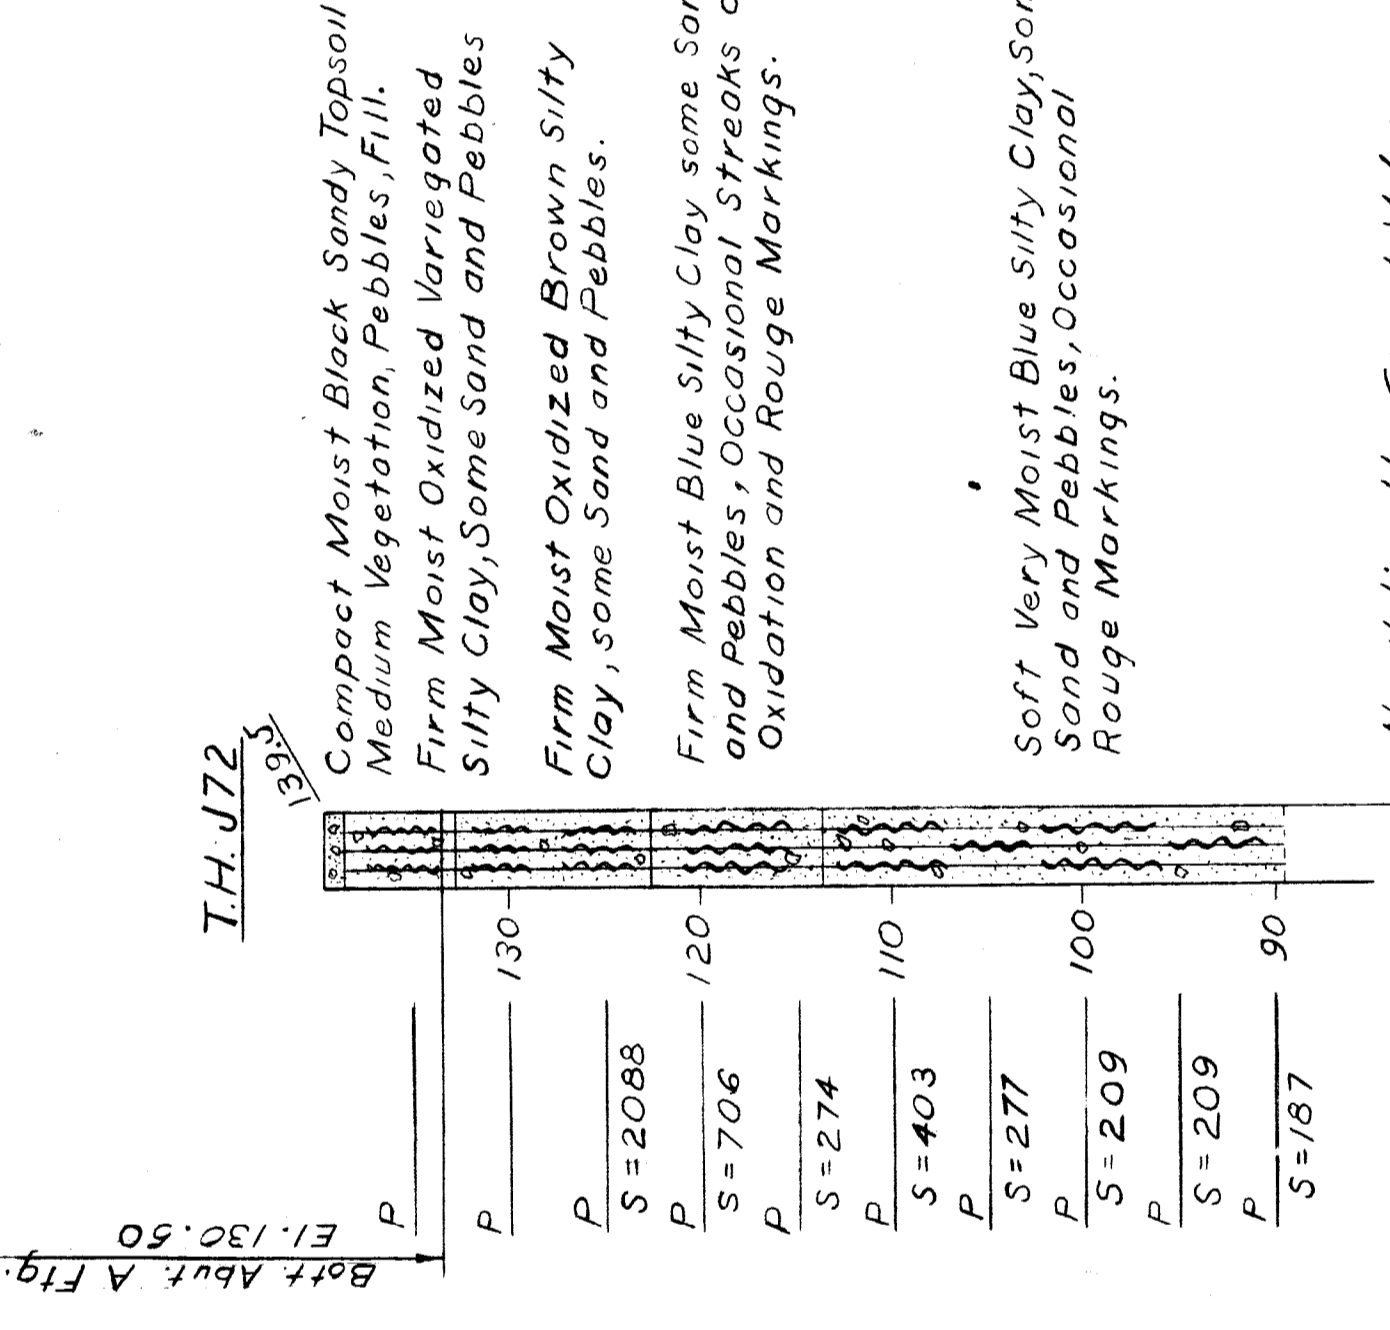 T.H. J72
139.5
Compact Moist Black Sandy Topsoil
Medium Vegetation, Pebbles, Fill.
Firm Moist Oxidized Variegated
Silty Clay, Some Sand and Pebbles
Firm Moist Oxidized Brown Silty
Clay, some Sand and Pebbles.
Firm Moist Blue Silty Clay some
and Pebbles, Occasional Streaks
Oxidation and Rouge Markings.
Soft Very Moist Blue Silty Clay,
Sand and Pebbles, Occasional
Rouge Markings.
130
120
110
100
90
P
P
P
S=2088
P
S=706
P
S=274
P
S=403
P
S=277
P
S=209
P
S=209
P
S=187
Bott. Abut. A Ftg.
El. 130.50